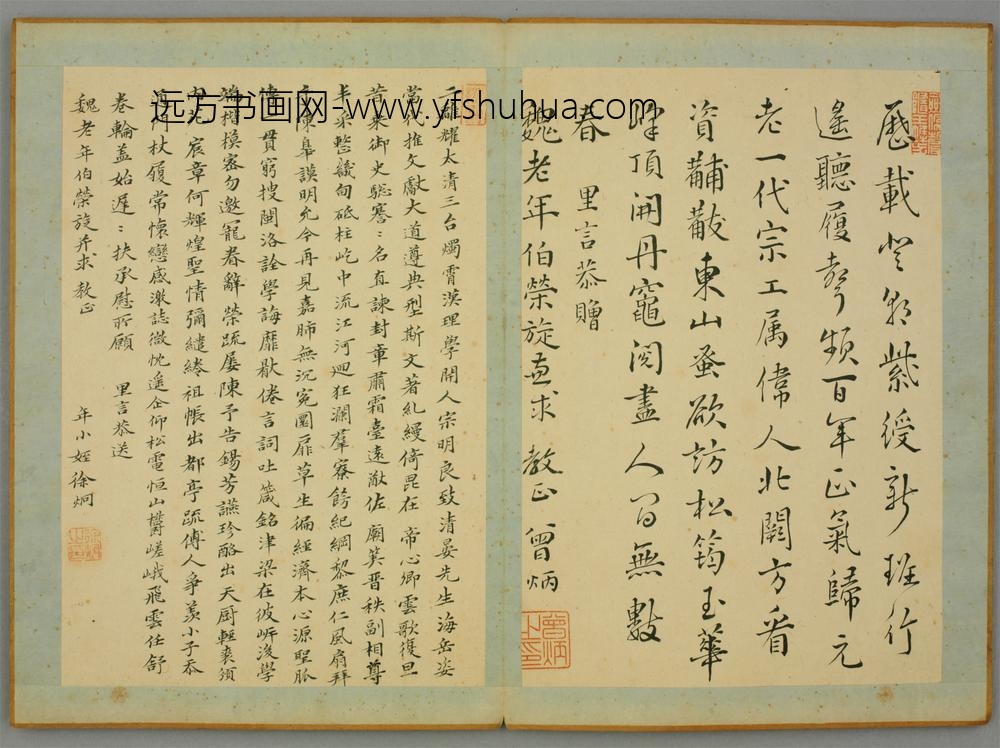 歷載登朝紫綬新班行
遙聽履聲頻百年正氣歸元
老一代宗工属偉人北闕方看
資黼黻東山蚤欲訪松筠玉華
峰頂開丹竈閱盡人間無數
春 里言恭贈
魏老年伯榮旋並求 教正 曾炳
曾炳之印
耀太清三台燭霄漢理學開人宗明良致清晏先生海岳姿
當代推文獻大道尊典型斯文著糺縵倚毘在 帝心卿雲歌復旦
昔乘御史驄謇:名直諫封章肅霜臺遠猷佐 廟筭晋秩副相尊
丰采慗畿甸砥柱屹中流江河迴狂瀾羣寮飭紀綱黎庶仁風扇拜
陳皋謨明允今再見嘉肺無沉冤圜扉草生徧經濟本心源聖脈
一貫窮搜閩洛詮學誨靡猒倦言詞吐箴銘津梁在彼岍浚學
楷模密勿邀寵眷辭榮疏屡陳予告錫芳讌珍酪出天厨輕裘須
宸章何輝煌聖情彌繾綣祖帳出都亭疏傅人爭羨小子忝
杖履常懷戀感激誌微忱遙企仰松電恒山欝嵯峨飛雲任舒
卷輪蓋始遲:扶承慰所願 里言恭送
魏老年伯榮旋并求 教正 年小姪徐炯
远方书画网-www.yfshuhua.com